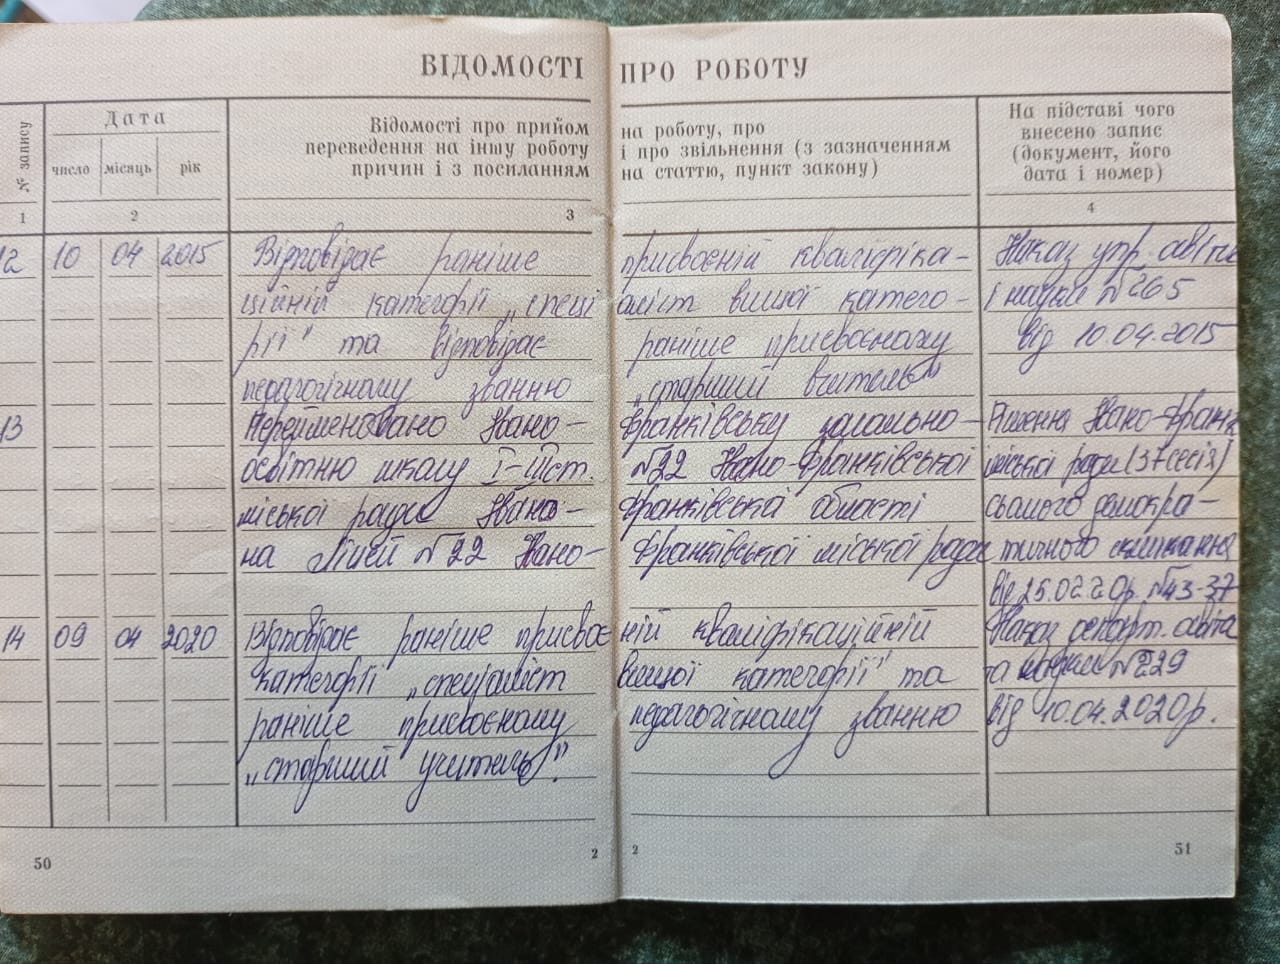 ВІДОМОСТІ ПРО РОБОТУ
№ запису
Дата
число місяць рік
Відомості про прийом на роботу, про
переведення на іншу роботу і про звільнення (з зазначенням
причин і з посиланням на статтю, пункт закону)
На підставі чого
внесено запис
(документ, його
дата і номер)
1 2 3 4
12 10 04 2015 Відповідає раніше присвоєній кваліфіка- Наказ упр. освіти
ційній категорії „спеціаліст вищої катего- і науки №265
рії" та відповідає раніше присвоєному від 10.04.2015
педагогічному званню „старший вчитель"
13 Перейменовано Івано-Франківську загально- Рішення Івано-Франк
освітню школу І-ІІІст. №22 Івано-Франківської міської ради (37сесія)
міської ради Івано-Франківської області сьомого демокра-
на Ліцей №22 Івано-Франківської міської ради тичного скликання
від 25.02.20р. №43-37
14 09 04 2020 Відповідає раніше присвоєній кваліфікаційній Наказ департ. освіти
категорії „спеціаліст вищої категорії" та та науки №229
раніше присвоєному педагогічному званню від 10.04.2020р.
„старший учитель".
50 2 2 51